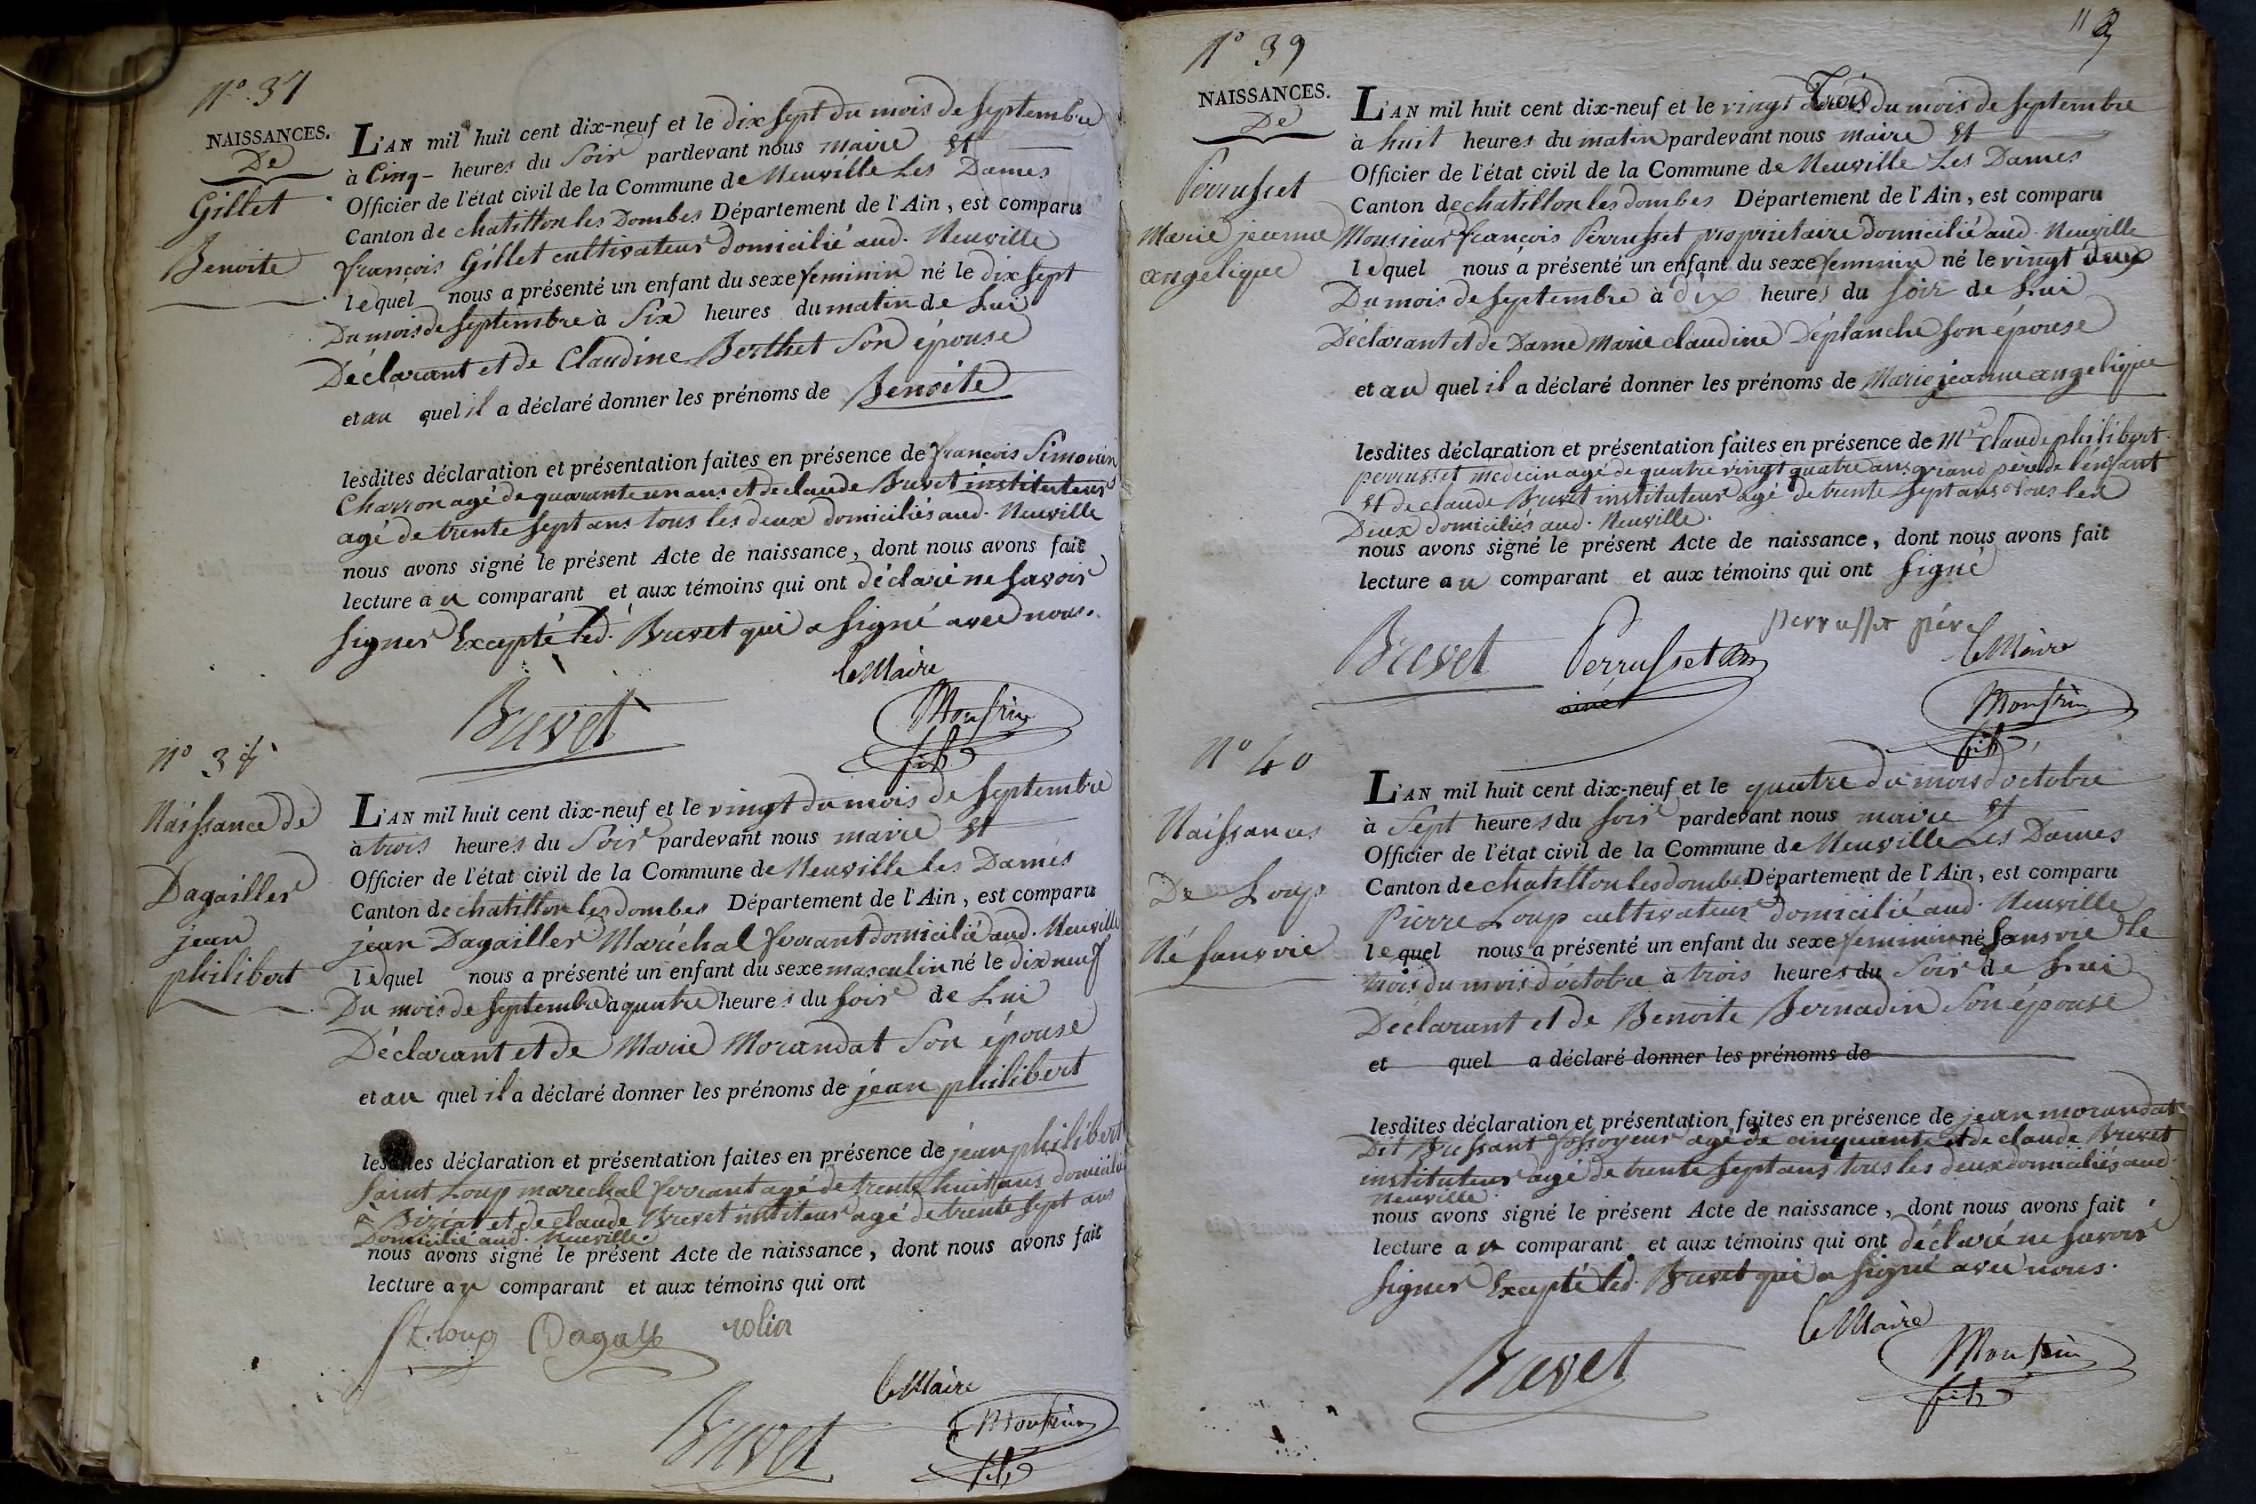 N° 37
NAISSANCES.
De
Gillet
Benoite
L'AN mil huit cent dix-neuf et le dix Sept du mois de Septembre
à Cinq - heures du Soir pardevant nous maire et
Officier de l'état civil de la Commune de Neuville Les Dames
Canton de chatillon les Dombes Département de l'Ain, est comparu
françois Gillet cultivateur domicilié aud. Neuville
lequel nous a présenté un enfant du sexe feminin né le dix Sept
Du mois de Septembre à Six heures du matin de Lui
Déclarant et de Claudine Berthet Son épouse
et au quel il a déclaré donner les prénoms de Benoite
lesdites déclaration et présentation faites en présence de françois Simonin
Charron agé de quarante un ans et de claude Buvet instituteur
agé de trente Sept ans tous les deux domiciliés aud. Neuville
nous avons signé le présent Acte de naissance, dont nous avons fait
lecture au comparant et aux témoins qui ont déclaré ne Savoir
Signer Excepté led. Buvet qui a Signé avec nous.
le Maire
Buvet
Monfrin
fils
N° 38
Naissance de
Dagailler
jean
philibert
L'AN mil huit cent dix-neuf et le vingt du mois de Septembre
à trois heures du Soir pardevant nous maire et
Officier de l'état civil de la Commune de Neuville les Dames
Canton de chatillon les dombes Département de l'Ain, est comparu
jean Dagailler Maréchal ferrant domicilié aud. Neuville
lequel nous a présenté un enfant du sexe masculin né le dix neuf
Du mois de Septembre à quatre heures du Soir de Lui
Déclarant et de Marie Morandat Son épouse
et au quel il a déclaré donner les prénoms de jean philibert
lesdites déclaration et présentation faites en présence de jean philibert
Saint Loup marechal ferrant agé de trente huit ans domicilié
à Biziat et de claude Buvet instituteur agé de trente Sept ans
Domicilié aud. Neuville.
nous avons signé le présent Acte de naissance, dont nous avons fait
lecture au comparant et aux témoins qui ont
St. loup
le Maire
Buvet
Monfrin
fils
N° 39
NAISSANCES.
De
Perrusset
Marie jeanne
angelique
L'AN mil huit cent dix-neuf et le vingt Trois du mois de Septembre
à huit heures du matin pardevant nous maire et
Officier de l'état civil de la Commune de Neuville Les Dames
Canton de chatillon les dombes Département de l'Ain, est comparu
Monsieur françois Perrusset propriétaire domicilié aud. Neuville
lequel nous a présenté un enfant du sexe feminin né le vingt deux
Du mois de Septembre à dix heures du Soir de Lui
Déclarant et de Dame Marie claudine Déplanche Son épouse
et au quel il a déclaré donner les prénoms de Marie jeanne angelique
lesdites déclaration et présentation faites en présence de Mr. claude philibert
perrusset medecin agé de quatre vingt quatre ans grand père de l'enfant
Et de claude Buvet instituteur agé de trente Sept ans tous les
Deux domiciliés aud. Neuville.
nous avons signé le présent Acte de naissance, dont nous avons fait
lecture au comparant et aux témoins qui ont Signé
perrusset père
Buvet Perrusset
ainé
le Maire
Monfrin
fils
N° 40
Naissances
De Loup
Né Sans vie
L'AN mil huit cent dix-neuf et le quatre du mois d'octobre
à Sept heures du Soir pardevant nous maire et
Officier de l'état civil de la Commune de Neuville Les Dames
Canton de chatillon les dombes Département de l'Ain, est comparu
Pierre Loup cultivateur domicilié aud. Neuville
lequel nous a présenté un enfant du sexe feminin né Sans vie le
trois du mois d'octobre à trois heures du Soir de Lui
Déclarant et de Benoite Bernadin Son épouse
et quel a déclaré donner les prénoms de
lesdites déclaration et présentation faites en présence de jean morandat
Dit Bressant fossoyeur agé de cinquante et de claude Buvet
instituteur agé de trente Sept ans tous les deux domiciliés aud.
Neuville.
nous avons signé le présent Acte de naissance, dont nous avons fait
lecture au comparant et aux témoins qui ont déclaré ne Savoir
Signer Excepté led. Buvet qui a Signé avec nous.
le Maire
Buvet
Monfrin
fils